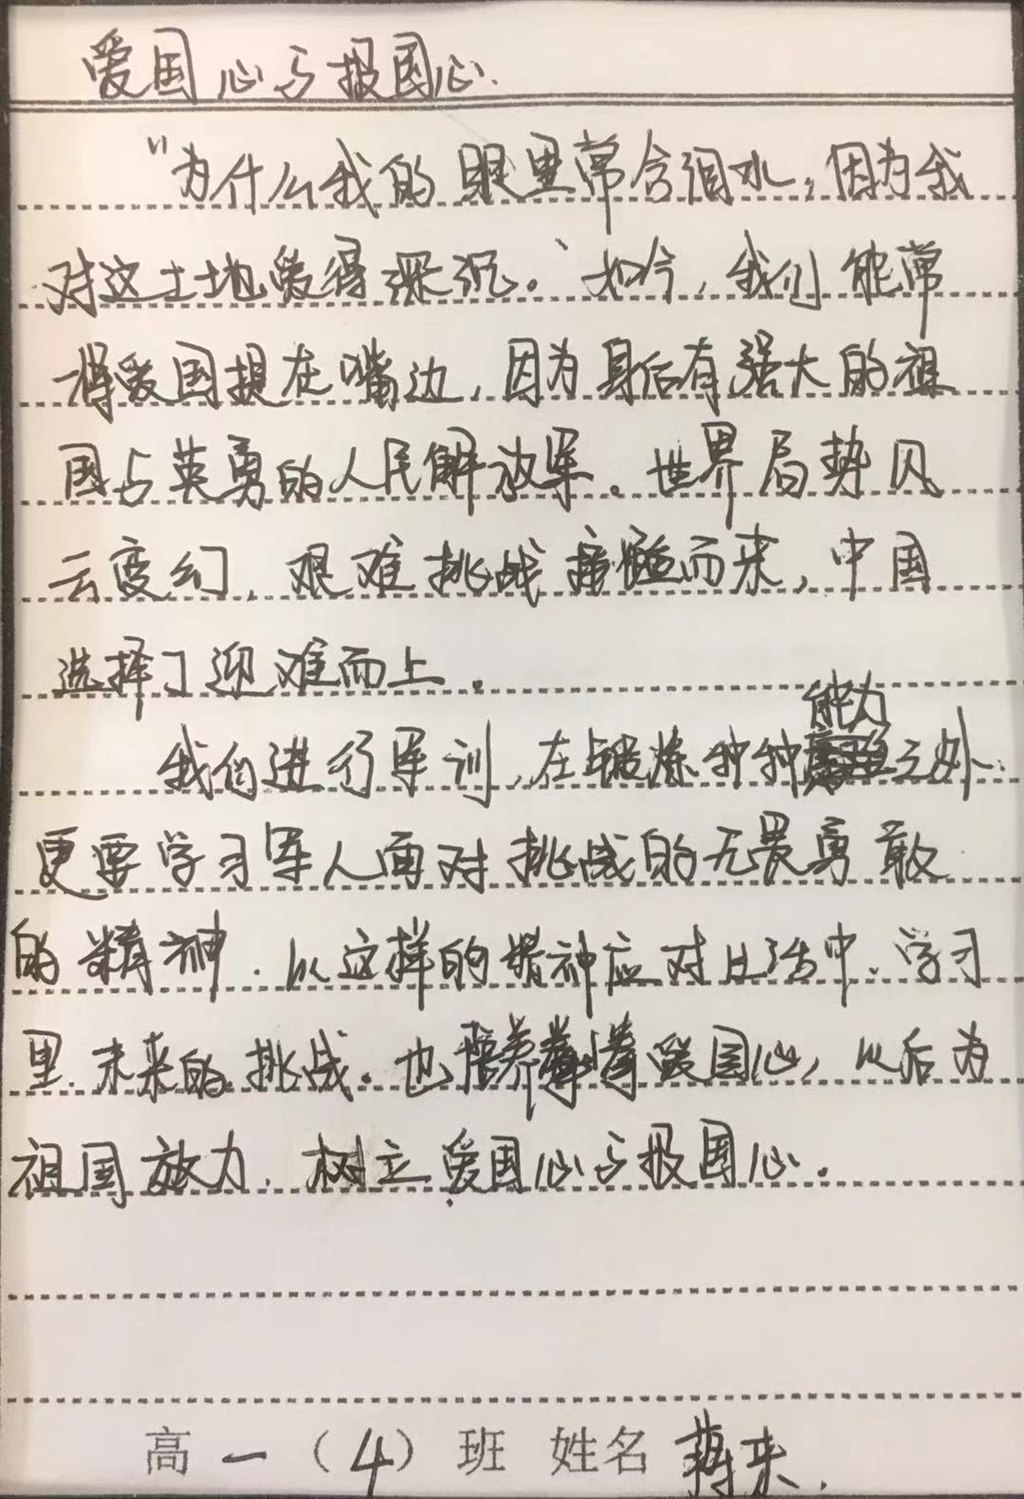 爱国心与报国心.
"为什么我的眼里常含泪水,因为我
对这土地爱得深沉。"如今,我们能常
将爱国提在嘴边,因为身后有强大的祖
国与英勇的人民解放军。世界局势风
云变幻,艰难挑战接踵而来,中国
选择了迎难而上。
我们进行军训,在锻炼种种能力之外,
更要学习军人面对挑战的无畏勇敢
的精神.以这样的精神应对生活中、学习
里、未来的挑战。也培养拳拳爱国心,以后为
祖国放力.树立爱国心与报国心。
高一(4)班 姓名